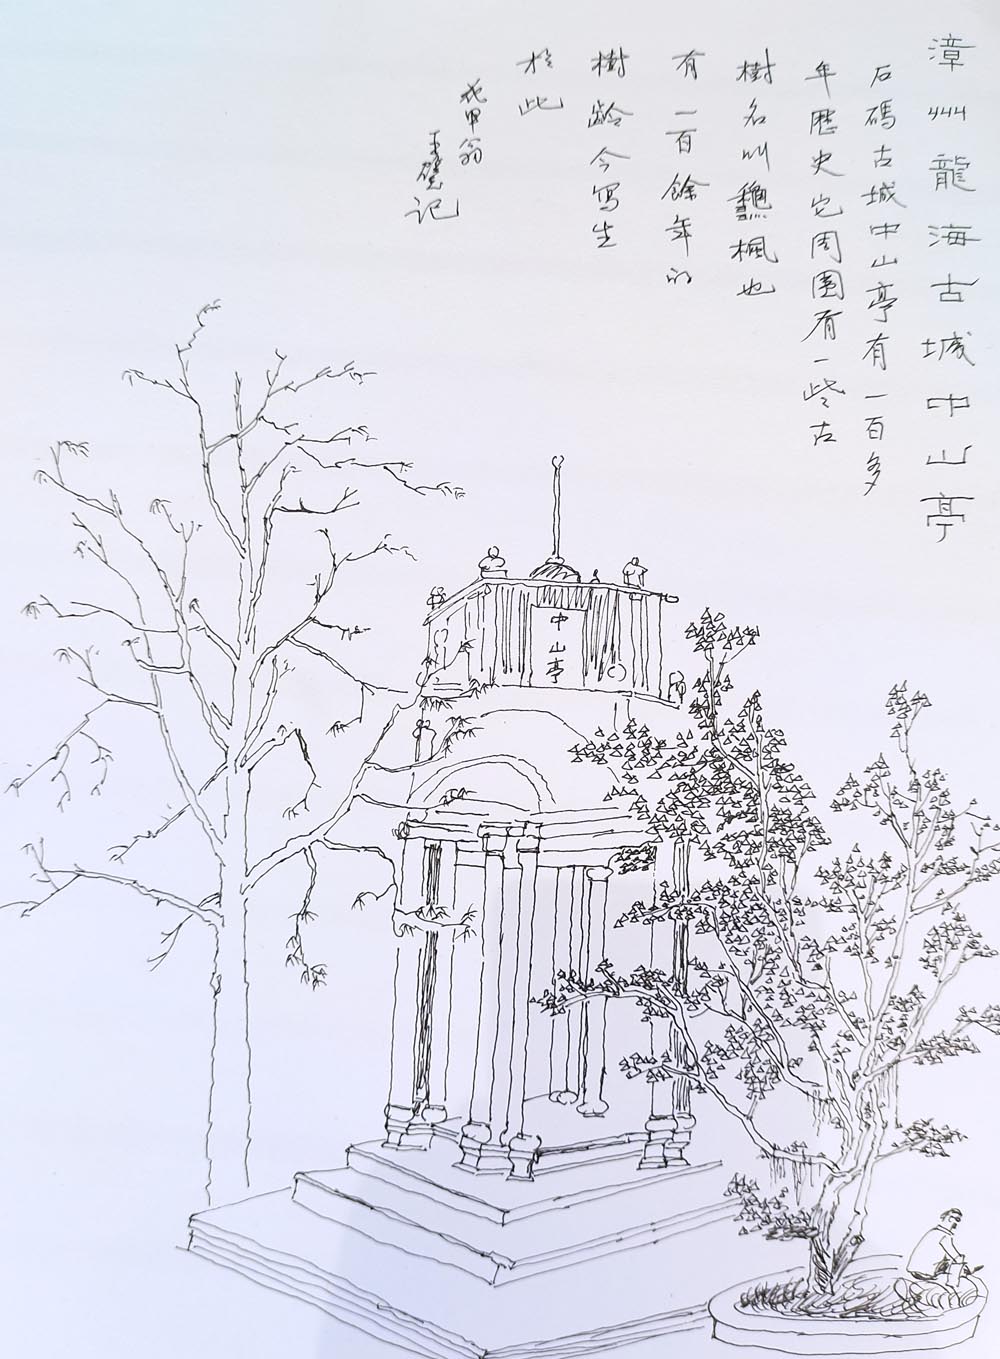 漳州龍海古城中山亭
石碼古城中山亭有一百多
年歷史它周圍有一些古
樹名叫楓也
有一百餘年的
樹齡今寫生
於此
花甲翁
王记
中山亭